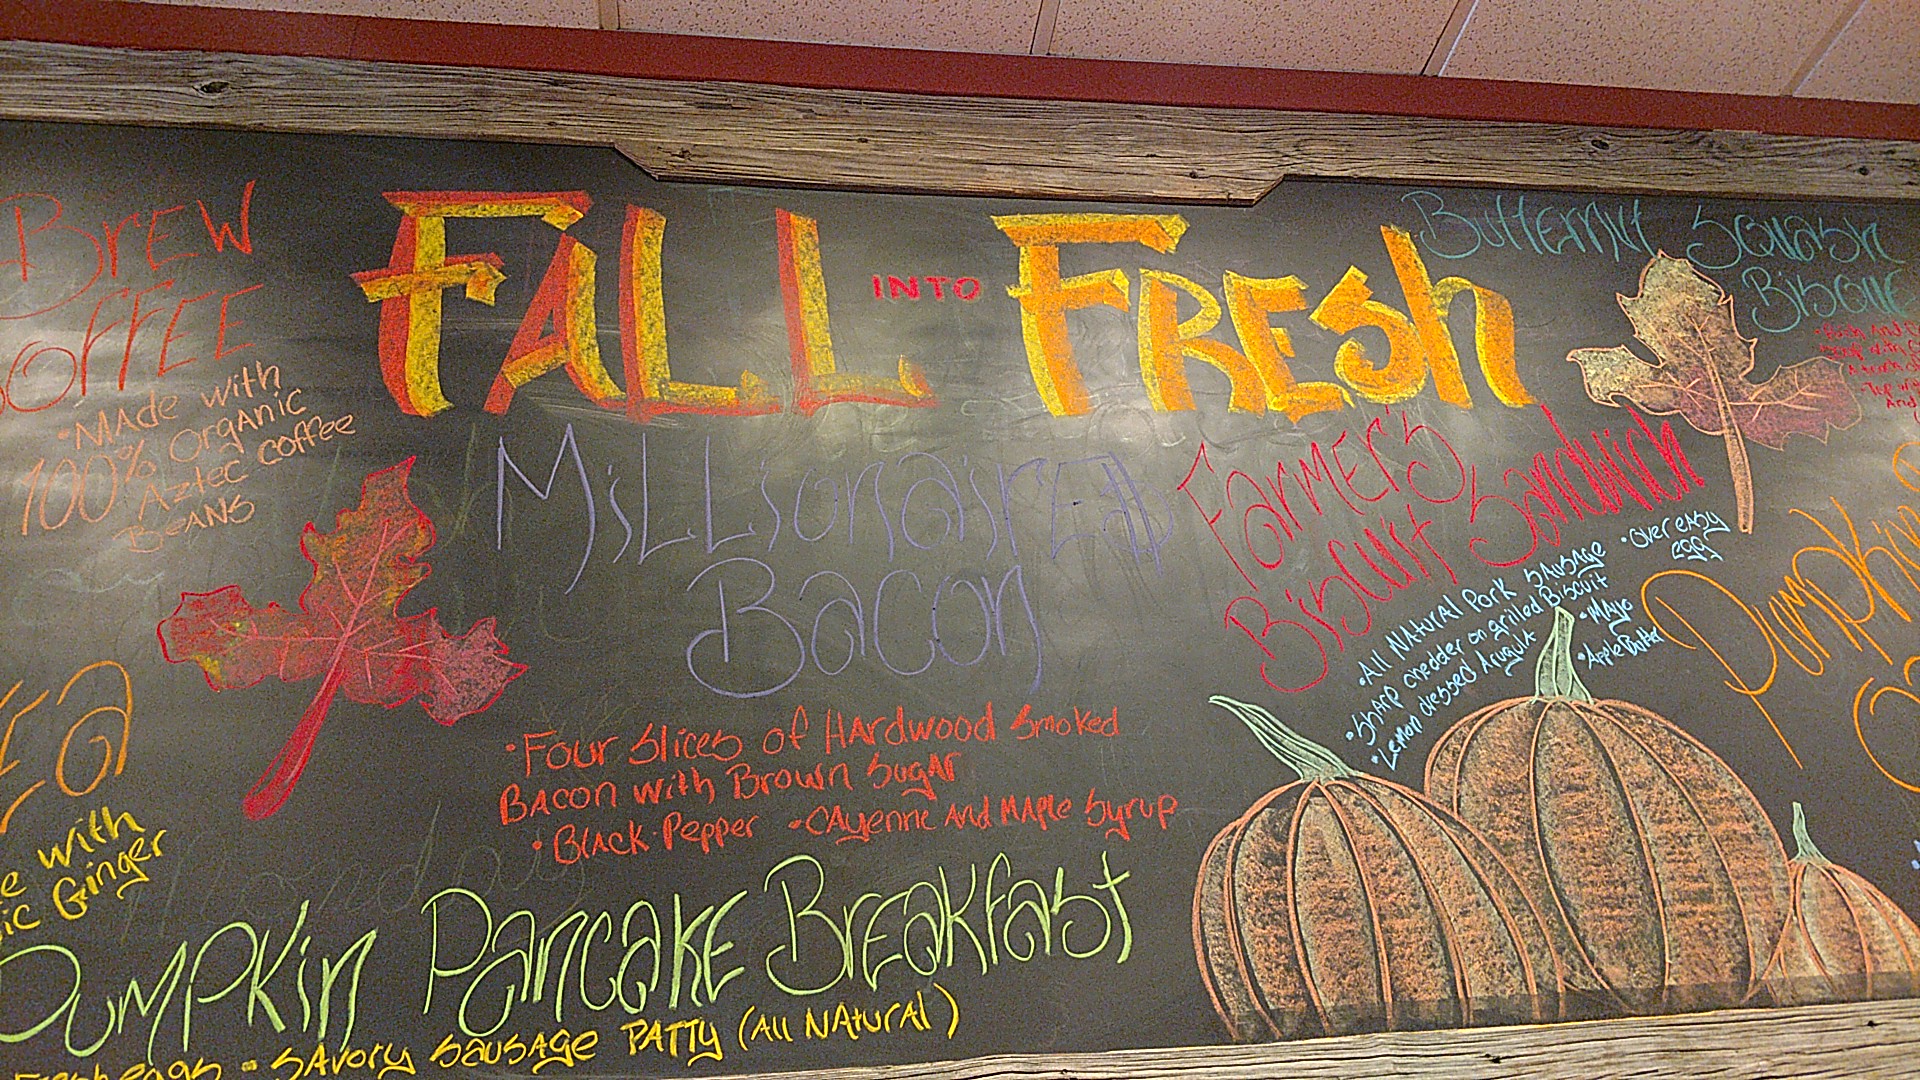 BrEW
COFFEE
• MAde with
100% OrgAnic
Aztec coffee
BeANS
FALL INTO FRESh
MiLLionairEs
Bacon
• Four Slices of HArdwood Smoked
BAcon with Brown SugAr
• BlAck Pepper • CAyenne And MAple Syrup
FarmEr's
Biscuit Sandwich
• All NAturAl Pork SAusAge • Over eAsy
egg
• ShArp chedder on grilled Biscuit
• MAyo
• Lemon dressed ArugulA
• Apple Butter
ButtErnut Squash
Bisque
Pumpkin
with
Ginger
PumpKin PancakE BreakfasT
Fresh eggs • SAvory SAusAge PATTy (All NAturAl)